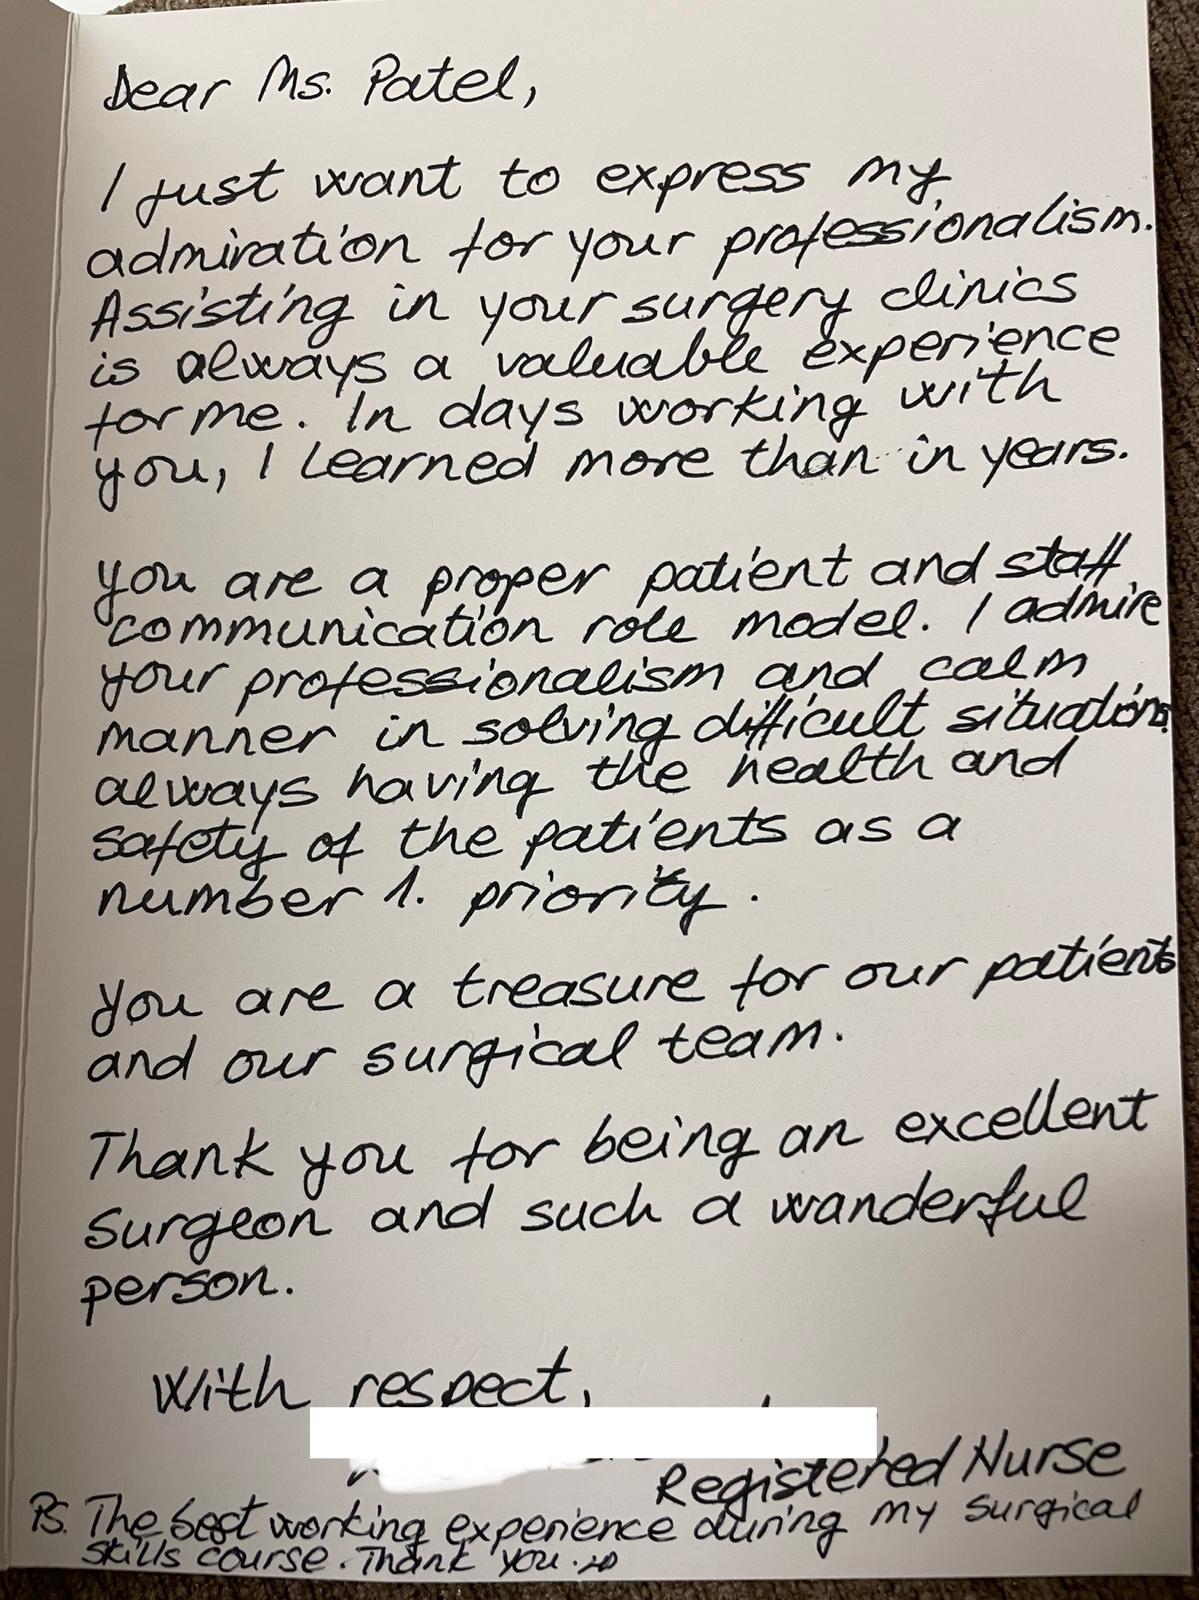 Dear Ms. Patel,
I just want to express my
admiration for your professionalism.
Assisting in your surgery clinics
is always a valuable experience
for me. In days working with
you, I learned more than in years.
You are a proper patient and staff
communication role model. I admire
your professionalism and calm
manner in solving difficult situations
always having the health and
safety of the patients as a
number 1. priority.
You are a treasure for our patients
and our surgical team.
Thank you for being an excellent
surgeon and such a wanderful
person.
With respect,
Registered Nurse
Ps. The best working experience during my surgical
skills course. Thank you.